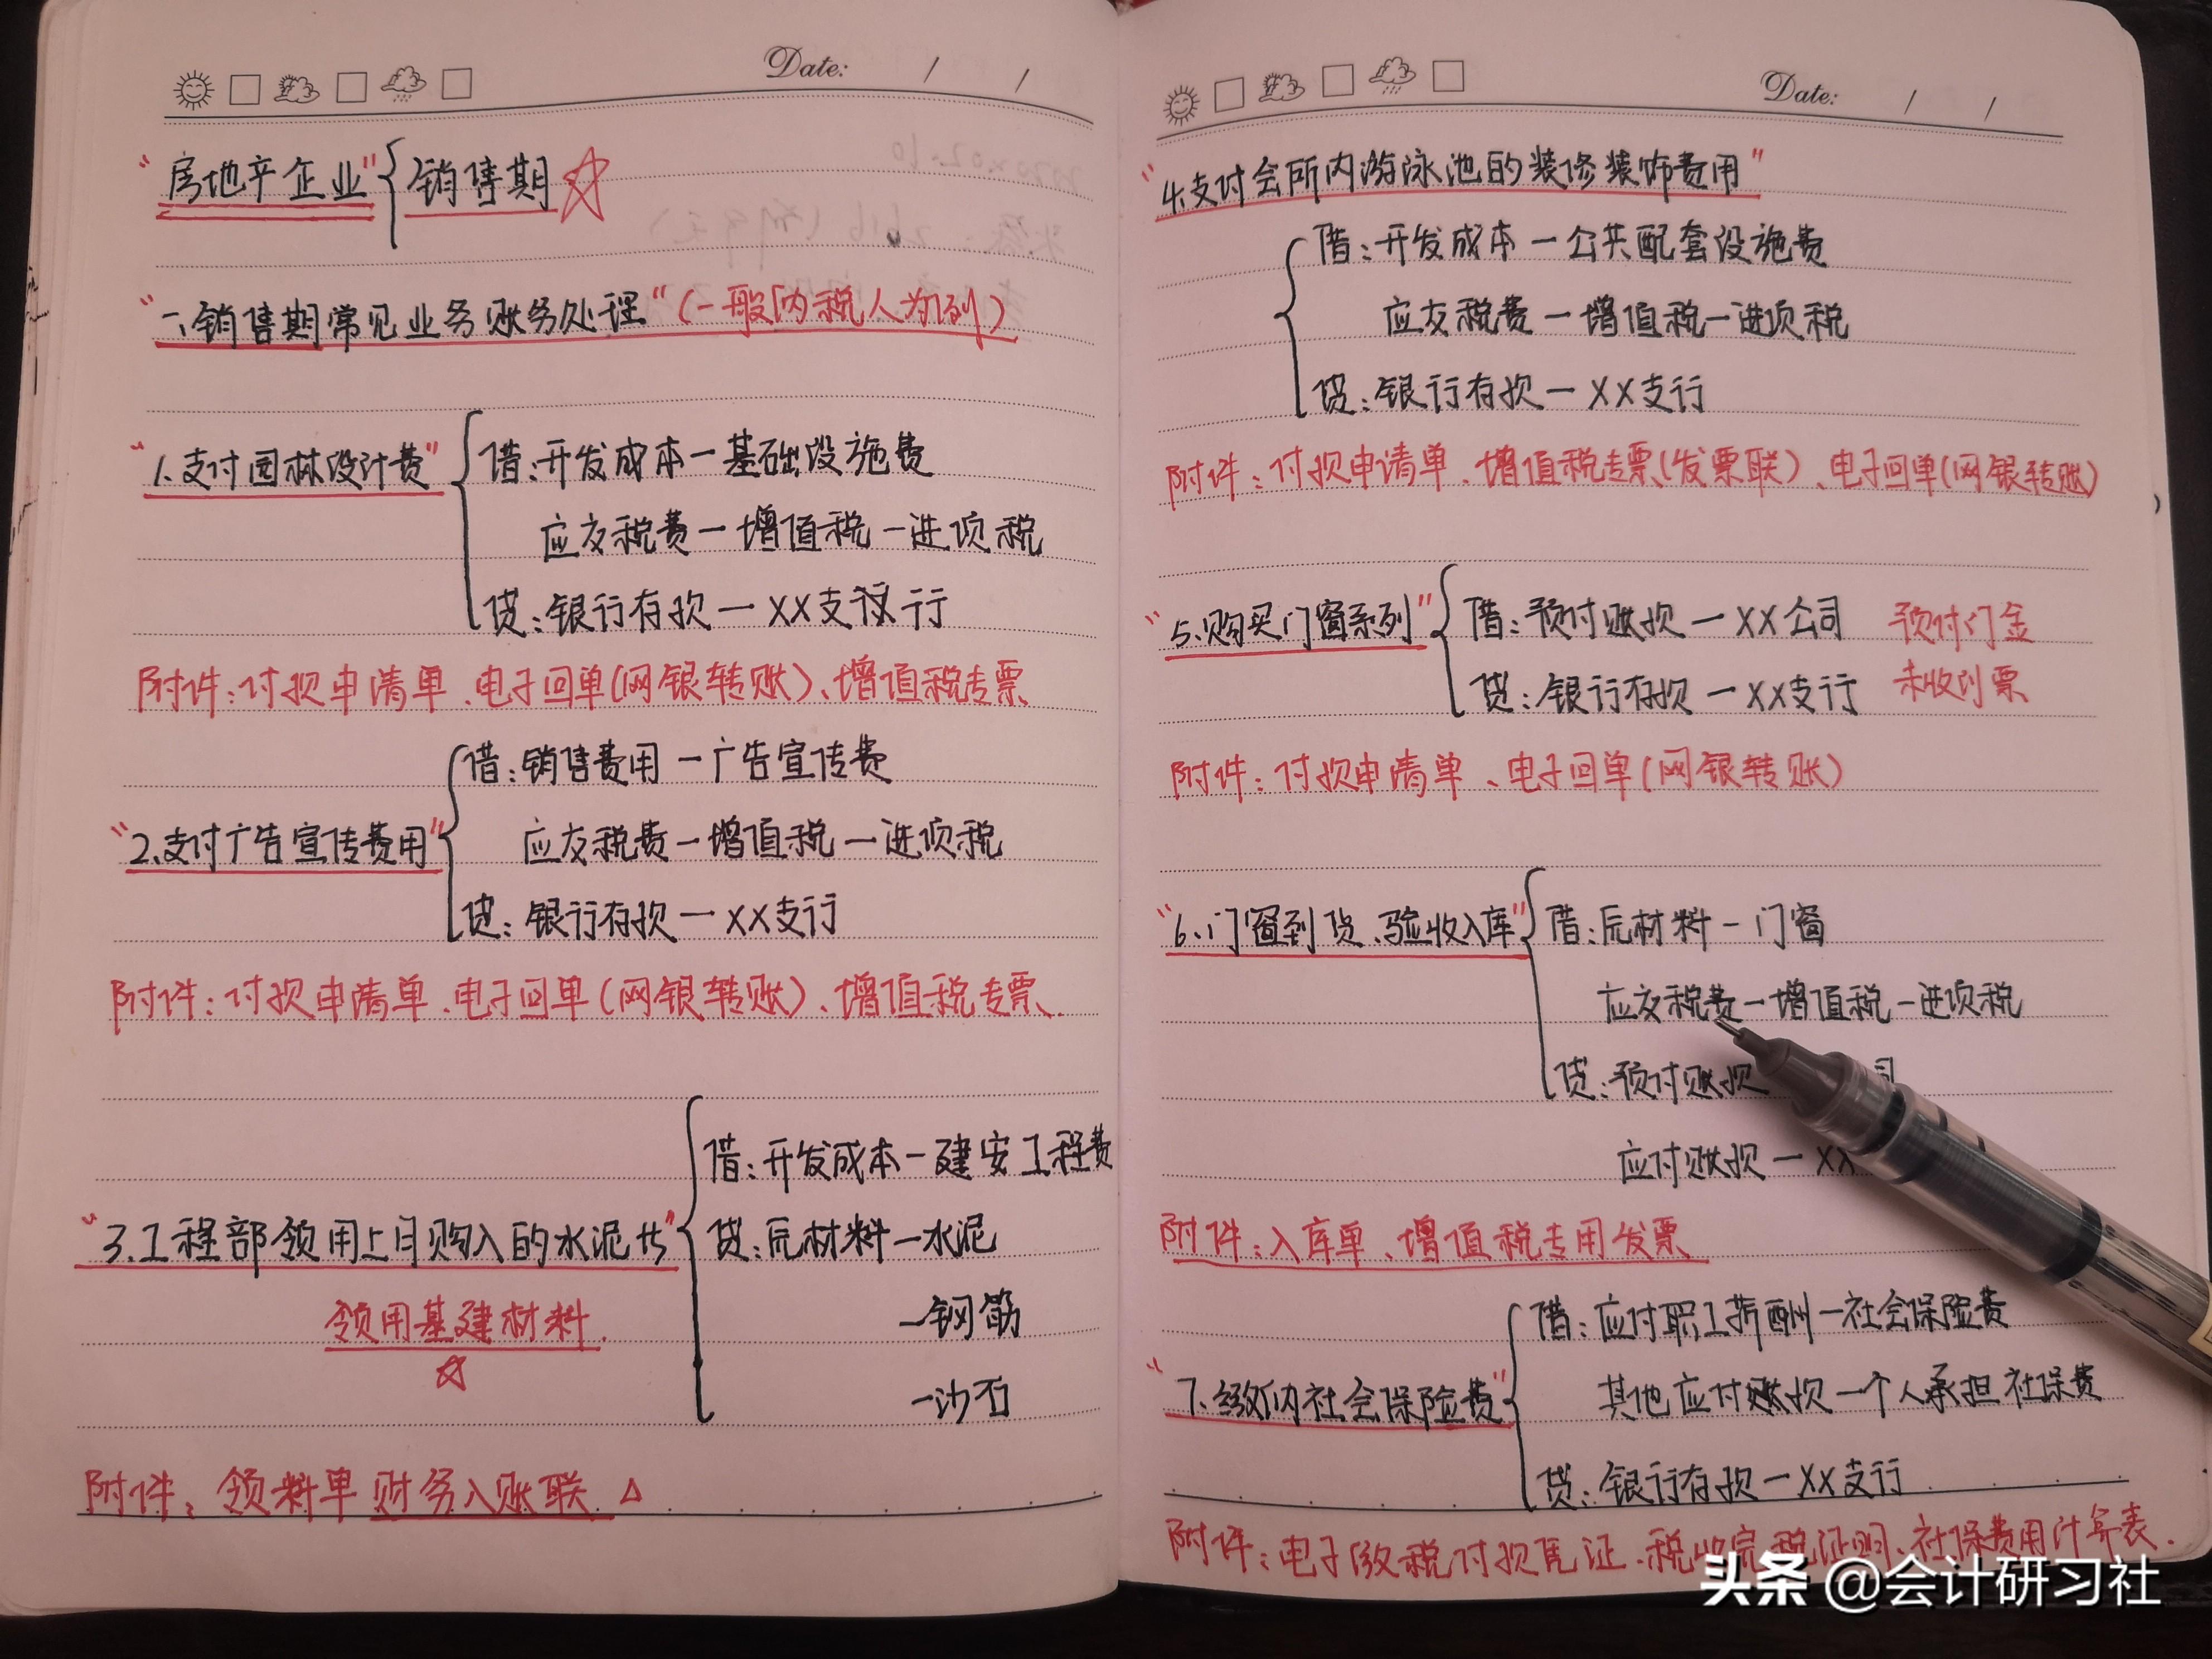 Date: / /
"房地产企业" 销售期
"一、销售期常见业务账务处理"(一般纳税人为例)
"1.支付园林设计费" 借:开发成本—基础设施费
应交税费—增值税—进项税
贷:银行存款—XX支行
附件:付款申请单、电子回单(网银转账)、增值税专票
借:销售费用—广告宣传费
"2.支付广告宣传费用" 应交税费—增值税—进项税
贷:银行存款—XX支行
附件:付款申请单、电子回单(网银转账)、增值税专票、
借:开发成本—建安工程费
"3.工程部领用上月购入的水泥 " 贷:原材料—水泥
领用基建材料. —钢筋
—沙石
附件:领料单财务入账联
Date: / /
"4.支付会所内游泳池的装修装饰费用"
借:开发成本—公共配套设施费
应交税费—增值税—进项税
贷:银行存款—XX支行
附件:付款申请单、增值税专票(发票联)、电子回单(网银转账)
"5.购买门窗系列" 借:预付账款—XX公司 预付订金
贷:银行存款—XX支行 未收到票
附件:付款申请单、电子回单(网银转账)
"6.门窗到货、验收入库" 借:原材料—门窗
应交税费—增值税—进项税
贷:预付账款 司
应付账款—XX
附件:入库单、增值税专用发票
借:应付职工薪酬—社会保险费
"7.缴纳社会保险费" 其他应付账款—个人承担社保费
贷:银行存款—XX支行
附件:电子缴税付款凭证、税收完税证明、社保费用计算表.
头条 @会计研习社